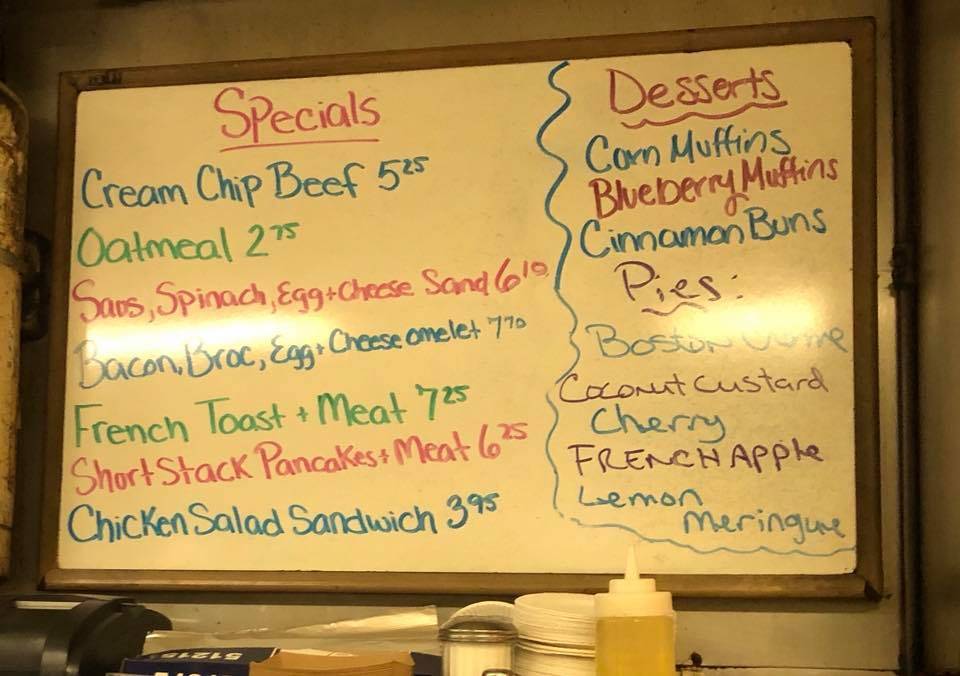 Specials
Cream Chip Beef 5 25
Oatmeal 2 75
Saus, Spinach, Egg + Cheese Sand 6 10
Bacon, Broc, Egg + Cheese omelet 7 70
French Toast + Meat 7 25
Short Stack Pancakes + Meat 6 25
Chicken Salad Sandwich 3 95
Desserts
Corn Muffins
Blueberry Muffins
Cinnamon Buns
Pies:
Boston Creme
Coconut Custard
Cherry
FRENCH APPle
Lemon
Meringue
51215